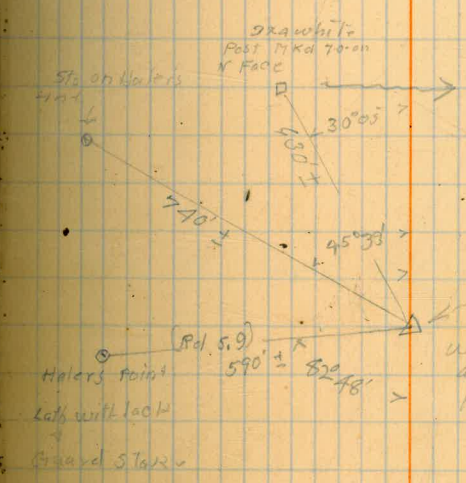 white
Post Mkd 70-on
N Face
Sta on Halers
30°05'
430' ±
740' ±
45°33'
(Rd 5.9)
590' ±
82° 48'
Halers Point
Lath with Tack
+
Guard Stake